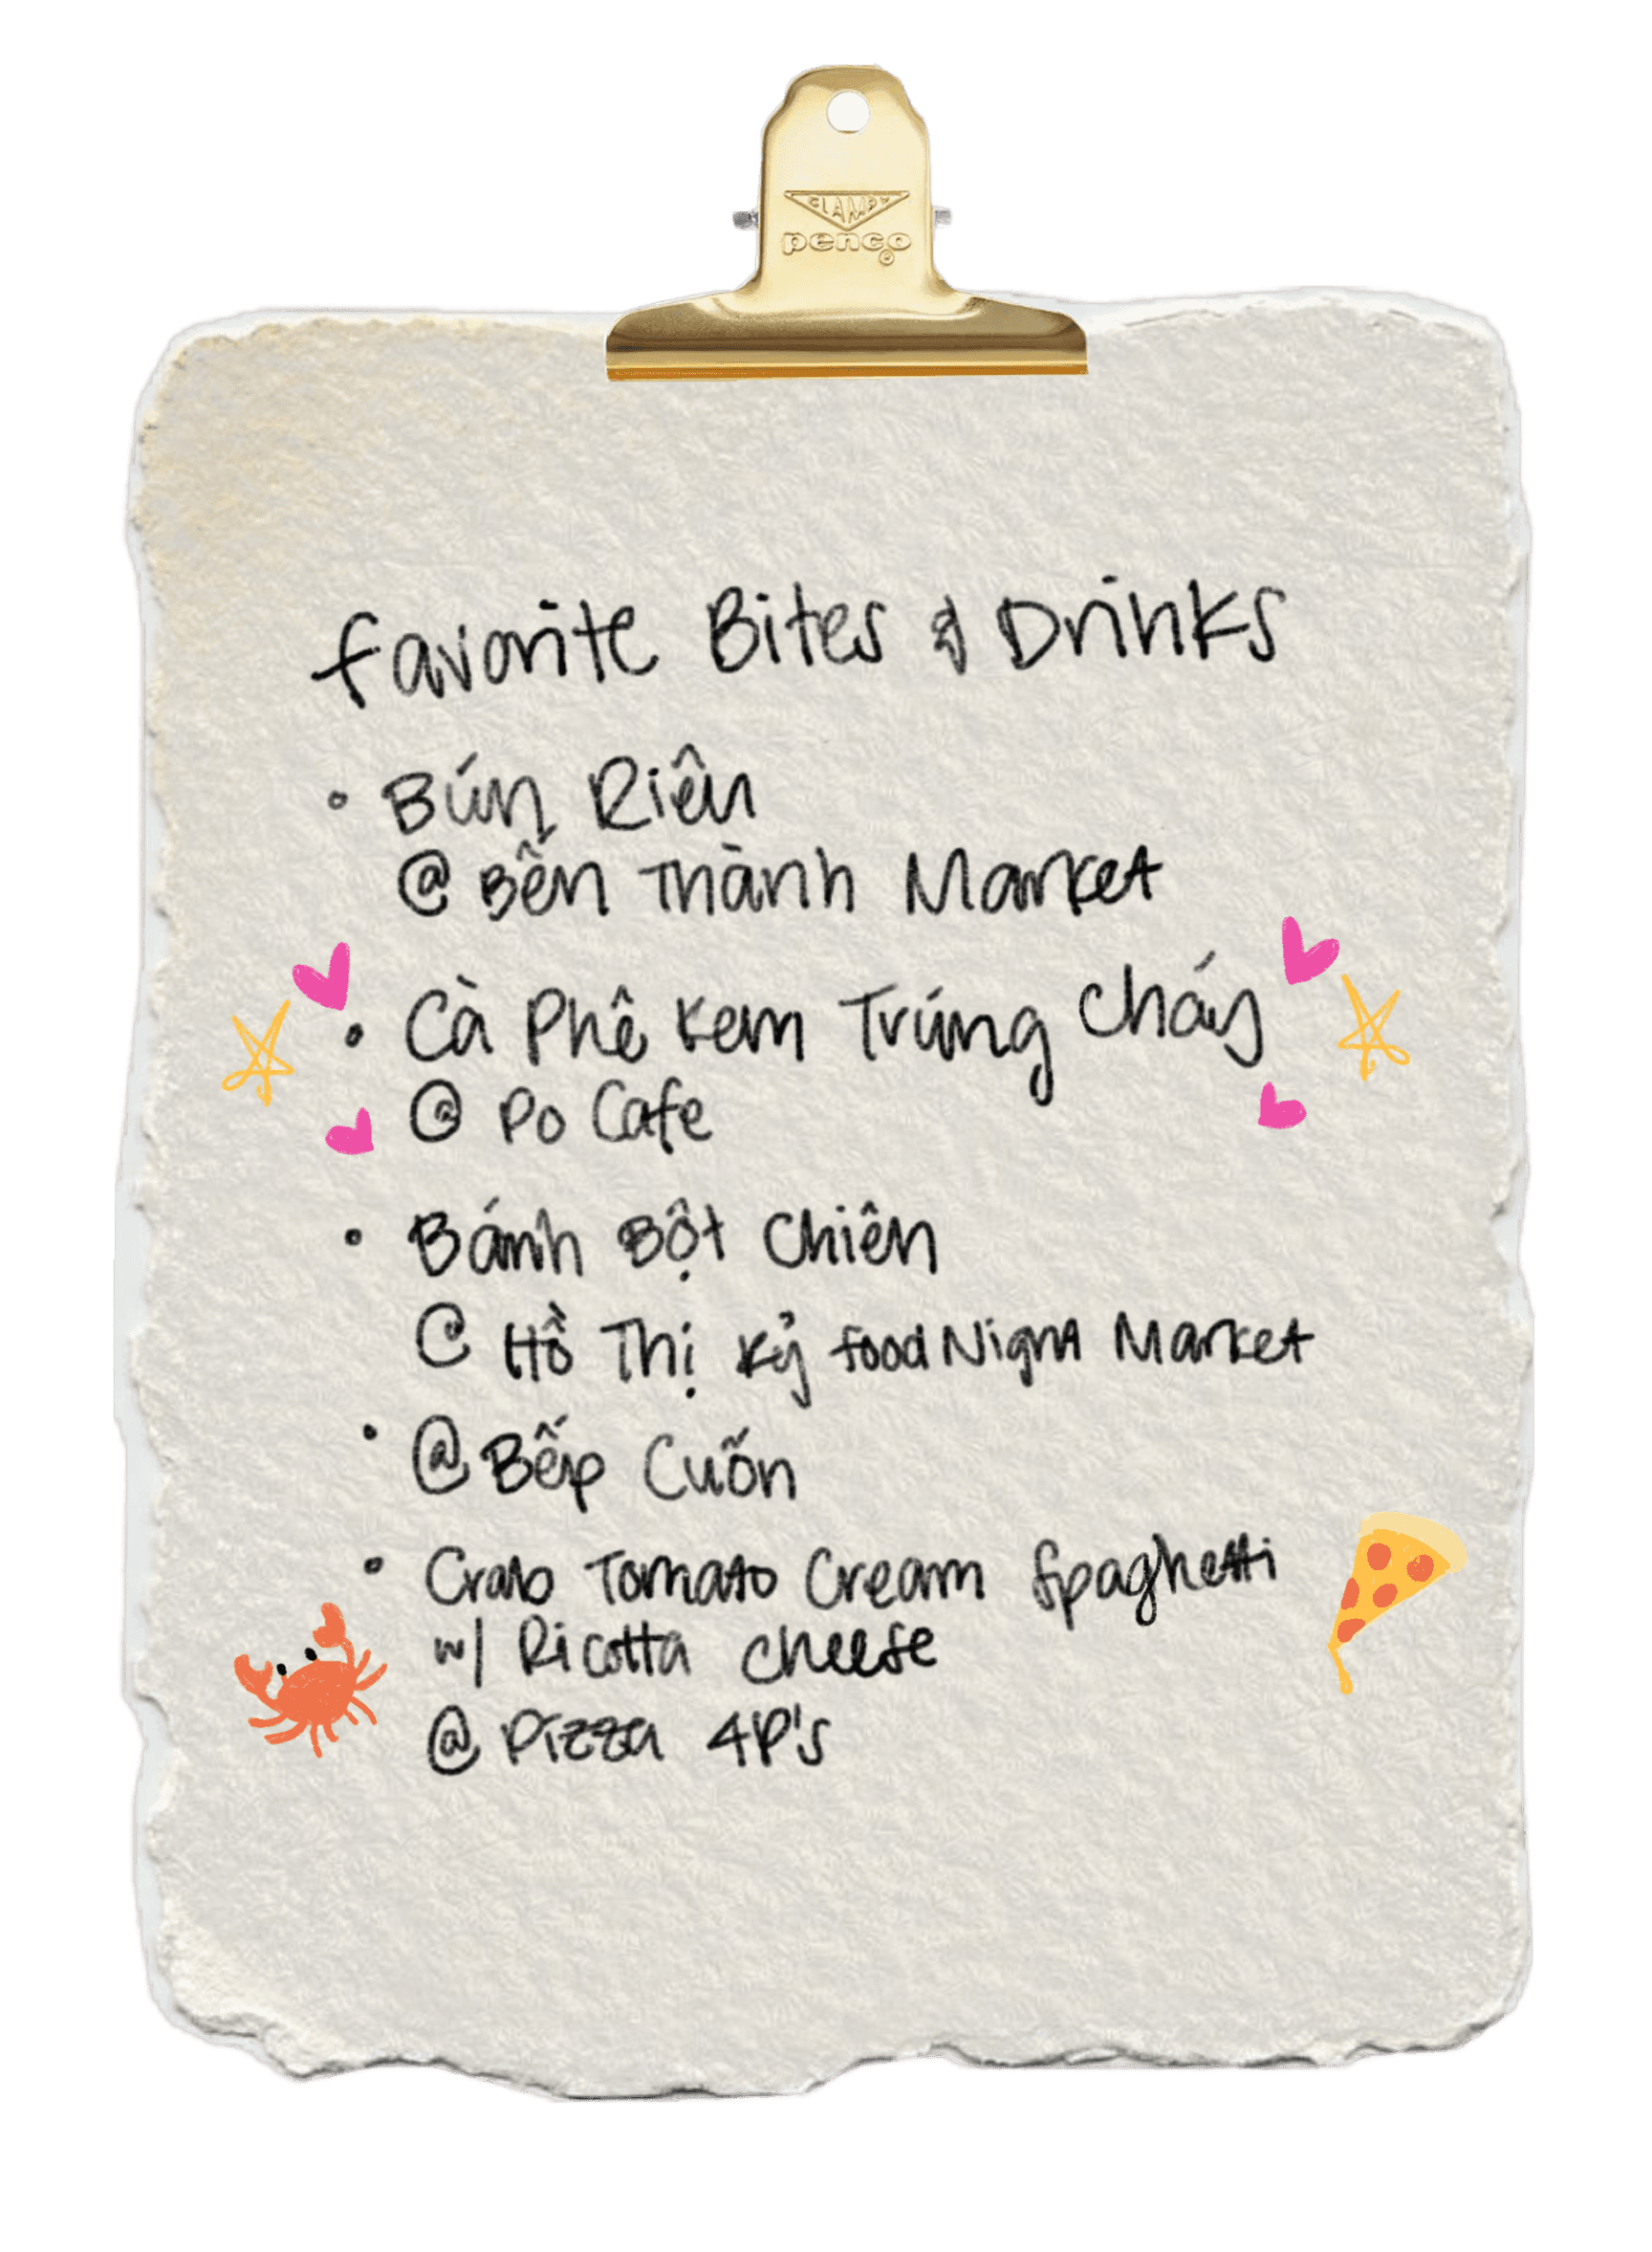 CLAMPY
penco
®
Favorite Bites & Drinks
• Bún Riêu
@ Bến Thành Market
• Cà Phê Kem Trứng Cháy
@ Po Cafe
• Bánh Bột Chiên
@ Hồ Thị Kỷ Food Night Market
• @ Bếp Cuốn
• Crab Tomato Cream Spaghetti
w/ Ricotta Cheese
@ Pizza 4P's